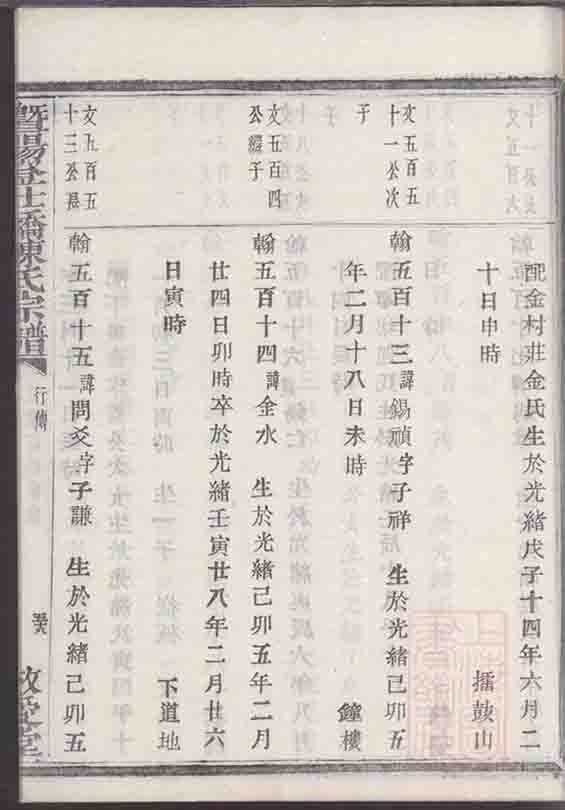 配金村莊金氏生於光緒戊子十四年六月二
十日申時　擂鼓山
文五百五
十一公次
子
翰五百十三諱錫禎字子祥　生於光緒己卯五
年二月十八日未時　鐘樓
文五百四
公繼子
翰五百十四諱金水　生於光緒己卯五年二月
廿四日卯時卒於光緒壬寅廿八年二月廿六
日寅時　下道地
文九百五
十三公長
翰五百十五諱問爻字子謙　生於光緒己卯五
暨陽學士橋陳氏宗譜
行傳